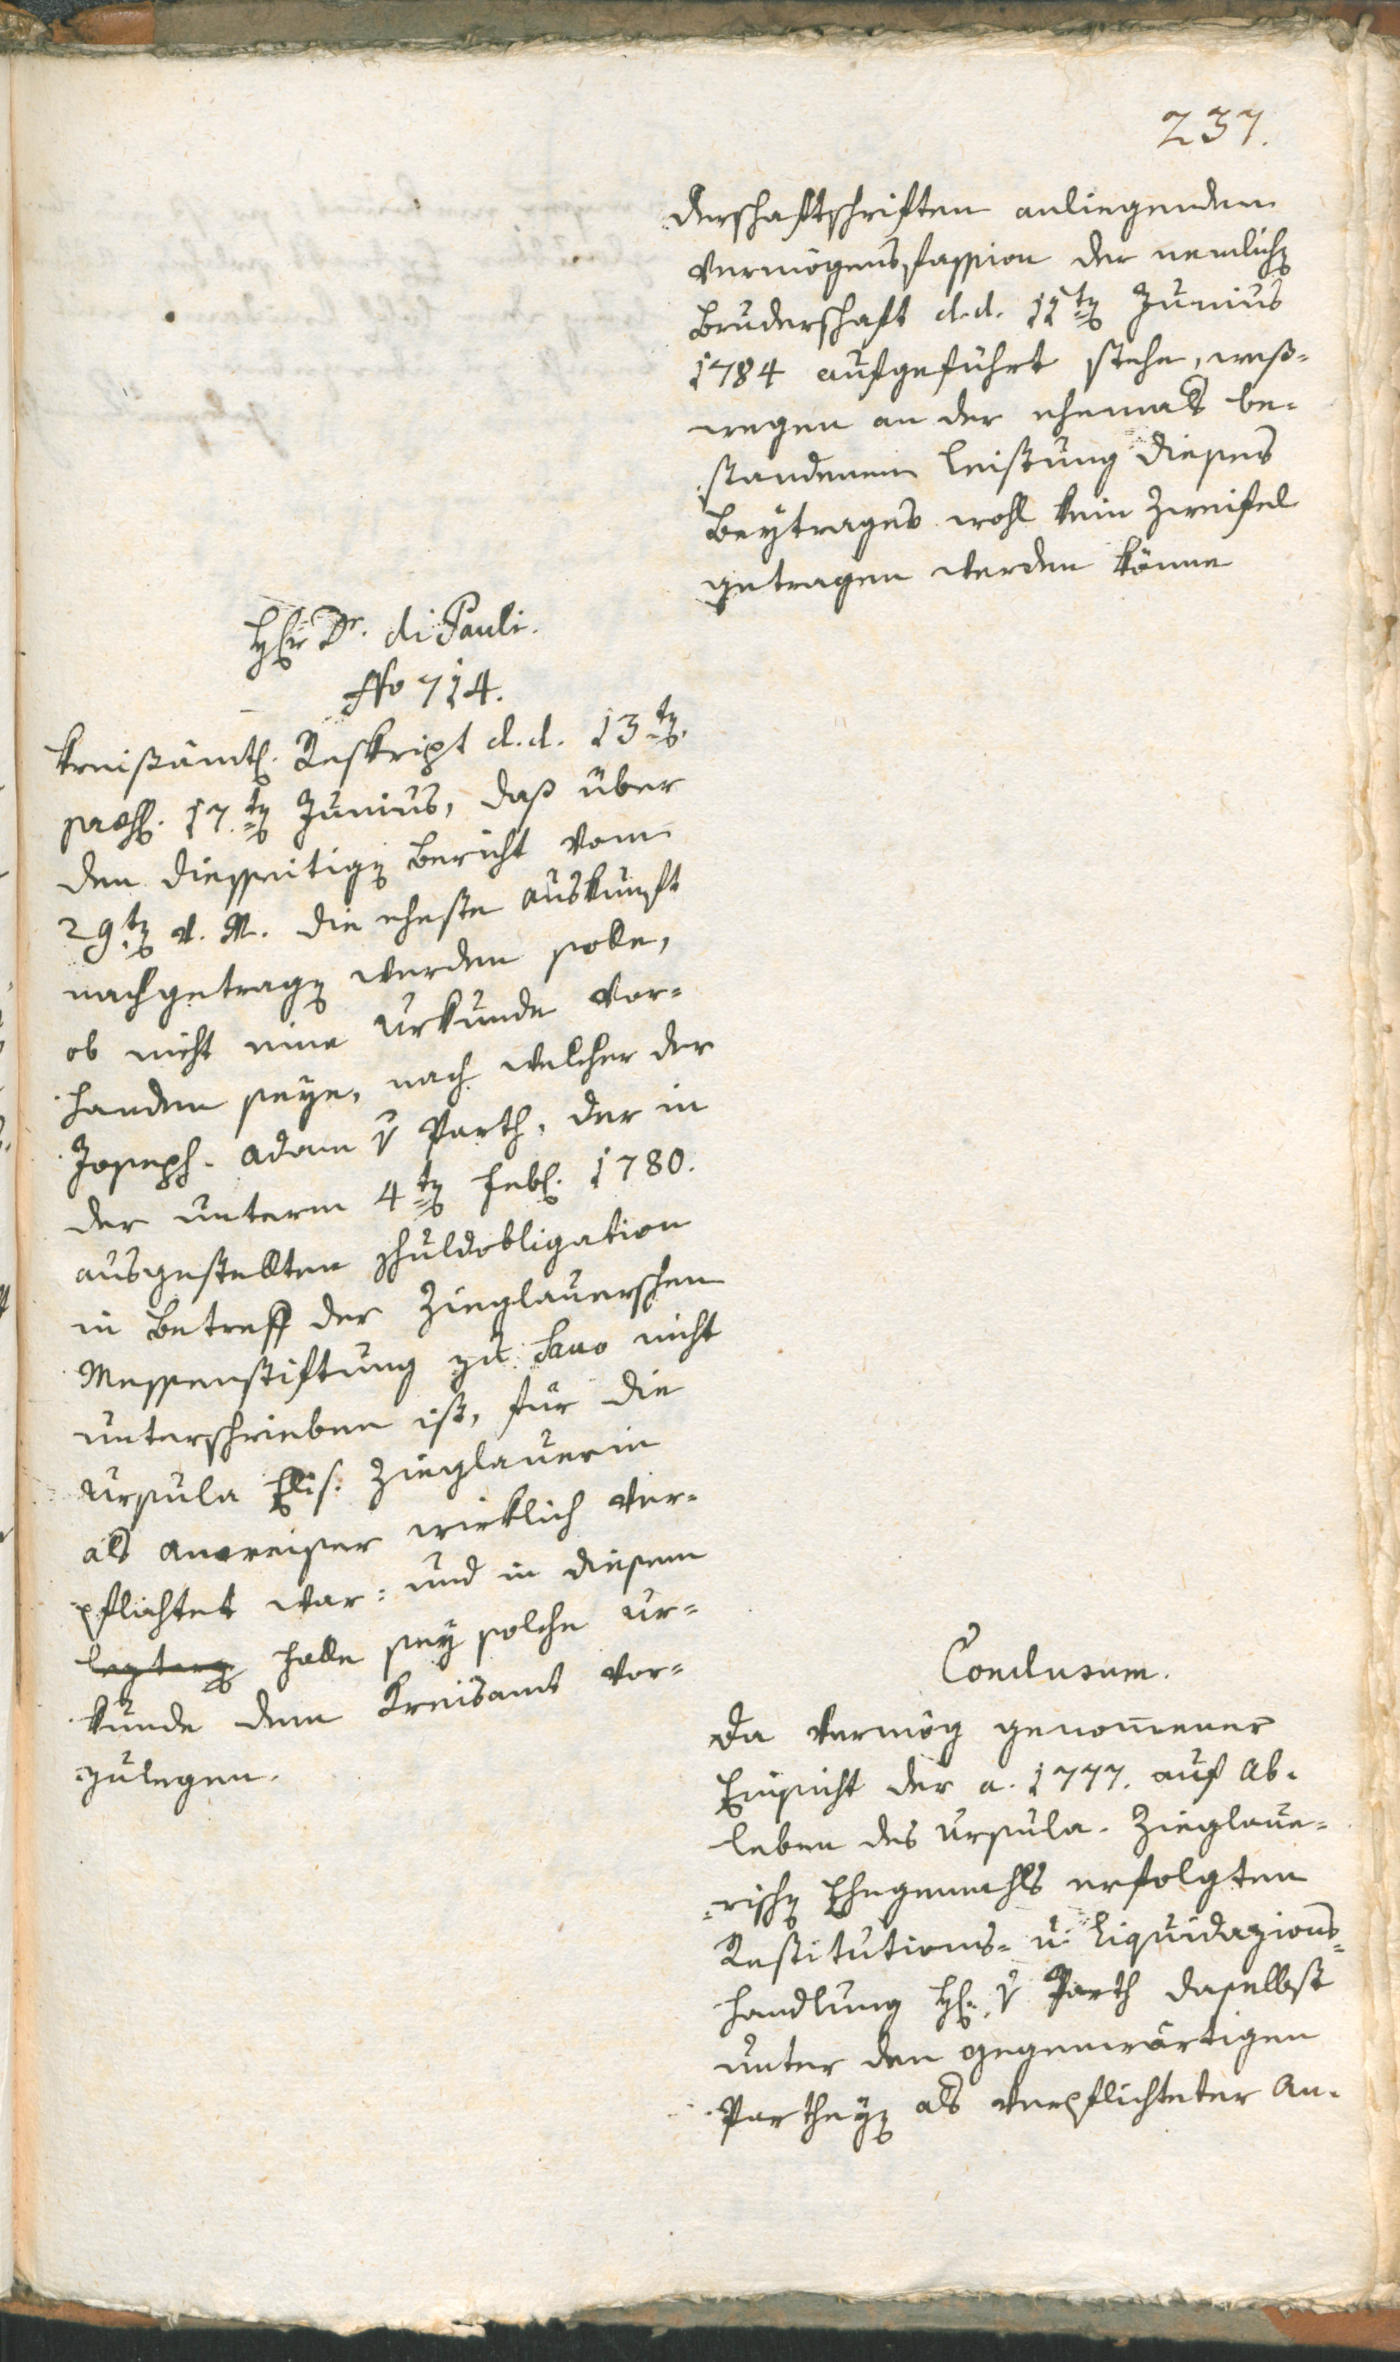 237.
derschaftschriften anliegenden
Vermögensfassion der nemlichen
Bruderschaft d. d. 11ten Junius
1784 aufgeführt stehe, weß-
wegen an der ehemals be-
standenen Leistung dieses
Beytrages wohl kein Zweifel
getragen werden könne
Hr Dr. di Pauli.
No 714.
Kreisämtl. Reskript d. d. 13ten
praes. 17ten Junius, daß über
den diesseitigen Bericht vom
29ten v. M. die eheste Auskunft
nachgetragen werden solle,
ob nicht eine Urkunde vor-
handen seye, nach welcher der
Joseph Adam v Parth, der in
der unterm 4ten Feb. 1780.
ausgestellten Schuldobligation
in Betreff der Zieglauerschen
Messenstiftung zu nicht
unterschrieben ist, für die
Ursula Elis. Zieglauerin
als Anweiser wirklich ver-
pflichtet war: und in diesem
leztern Falle sey solche Ur-
kunde dem Kreisamt vor-
zulegen.
Conclusum.
Da vermög genomener
Einsicht der a. 1777. auf Ab-
leben des Ursula Zieglaue-
rischen Ehegemahls erfolgten
Restitutions- u. Liquidazions-
handlung H. v Parth daselbst
unter den gegenwärtigen
Partheyen als verpflichteter An-